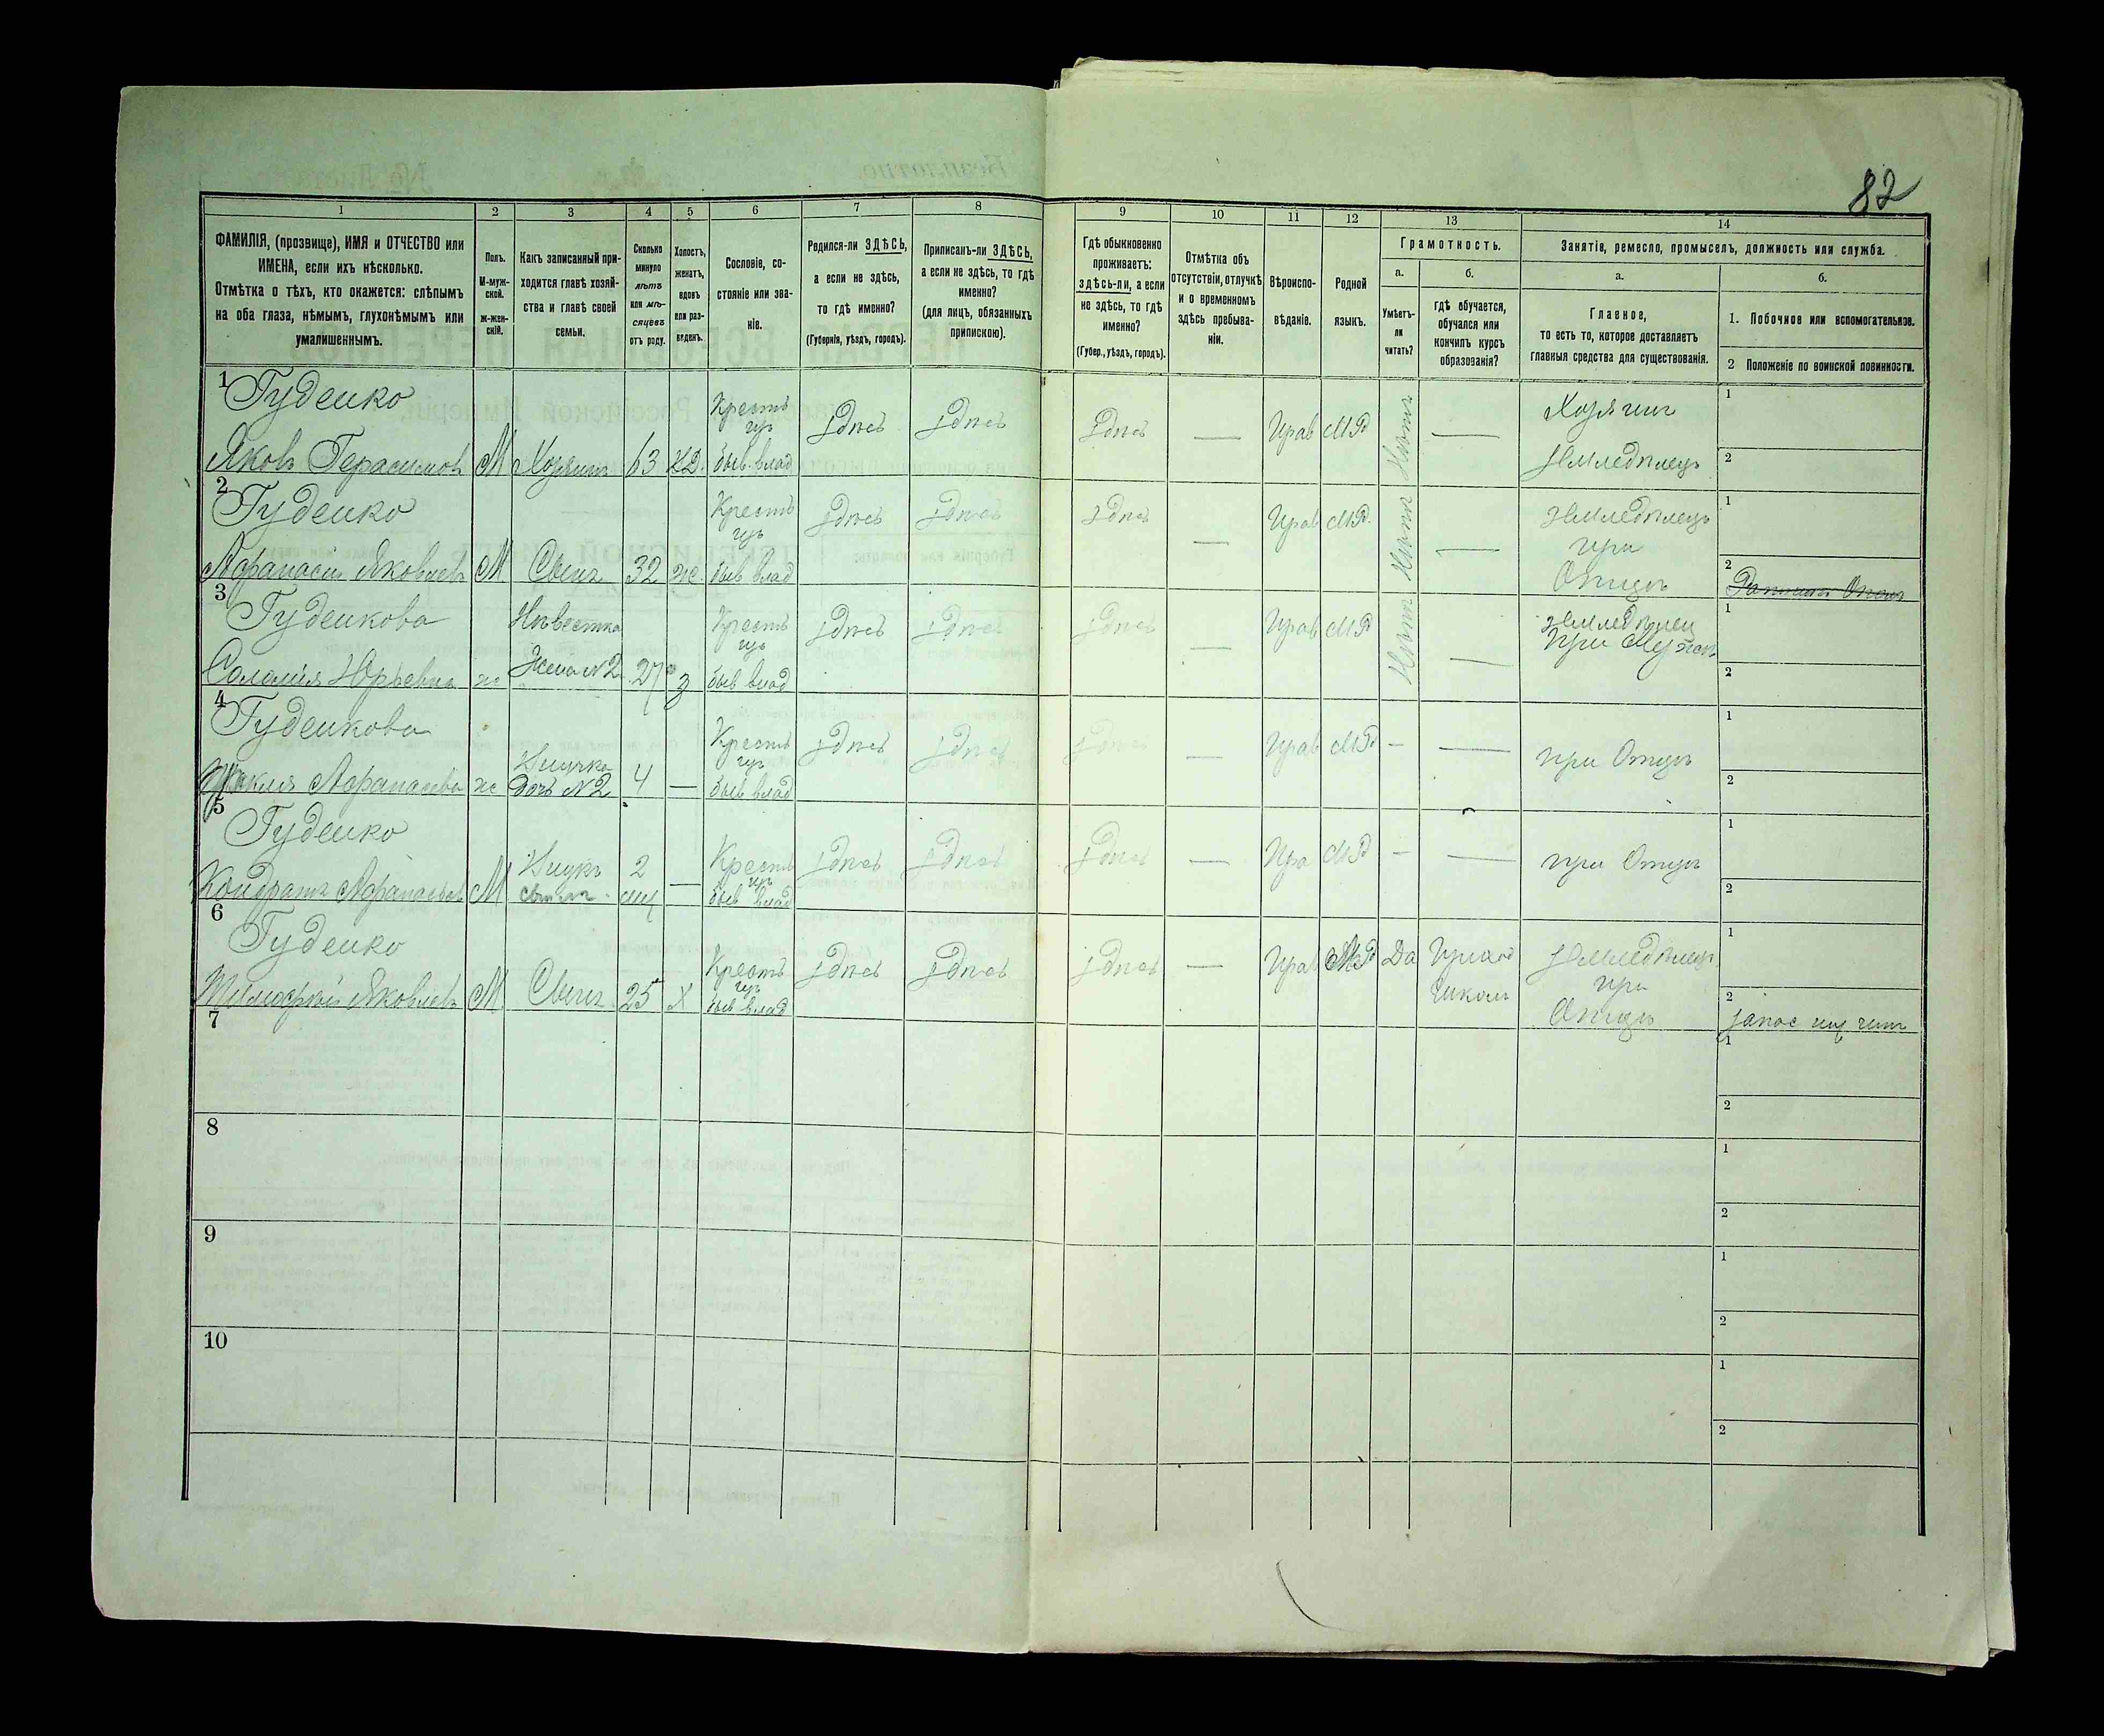 82
1 2 3 4 5 6 7 8 9 10 11 12 13 14
ФАМИЛІЯ, (прозвище), ИМЯ и ОТЧЕСТВО или
ИМЕНА, если ихъ нѣсколько.
Отмѣтка о тѣхъ, кто окажется: слѣпымъ
на оба глаза, нѣмымъ, глухонѣмымъ или
умалишеннымъ.
Полъ.
М-муж-
ской.
Ж-жен-
скій.
Какъ записанный при-
ходится главѣ хозяй-
ства и главѣ своей
семьи.
Сколько
минуло
лѣтъ
или мѣ-
сяцевъ
отъ роду.
Холостъ,
женатъ,
вдовъ
или раз-
веденъ.
Сословіе, со-
стояніе или зва-
ніе.
Родился-ли ЗДѢСЬ,
а если не здѣсь,
то гдѣ именно?
(Губернія, уѣздъ, городъ).
Приписанъ-ли ЗДѢСЬ,
а если не здѣсь, то гдѣ
именно?
(для лицъ, обязанныхъ
припискою).
Гдѣ обыкновенно
проживаетъ:
здѣсь-ли, а если
не здѣсь, то гдѣ
именно?
(Губер., уѣздъ, городъ).
Отмѣтка объ
отсутствіи, отлучкѣ
и о временномъ
здѣсь пребыва-
ніи.
Вѣроиспо-
вѣданіе.
Родной
языкъ.
Грамотность.
а.
Умѣетъ-
ли
читать?
б.
гдѣ обучается,
обучался или
кончилъ курсъ
образованія?
Занятіе, ремесло, промыселъ, должность или служба.
а.
Главное,
то есть то, которое доставляетъ
главныя средства для существованія.
б.
1. Побочное или вспомогательное.
2 Положеніе по воинской повинности.
1 Гуденко Крестъ здѣсь здѣсь здѣсь — Прав МР Нѣтъ — Хозяинъ 1
Яковъ Герасимовъ М Хозяинъ 63 ВД. быв. влад Землѣдѣлецъ 2
2 Гуденко Крестъ здѣсь здѣсь здѣсь — Прав МР. Нѣтъ — Землѣдѣлецъ 1
при
Афанасій Яковлевъ М Сынъ 32 Ж. быв влад Отцѣ 2
3 Гуденкова Невѣстка Крестъ здѣсь здѣсь здѣсь — Прав МР Нѣтъ — землѣдѣлец 1
при Мужѣ
Соломія Юрьевна ж Жена №2 27 З быв влад 2
4 Гуденкова Крестъ здѣсь здѣсь здѣсь — Прав МР — — при Отцѣ 1
Внучка
Афанасіева ж Дочь №2 4 — быв влад 2
5 Гуденко здѣсь здѣсь здѣсь — Пра МР — — при Отцѣ 1
Внукъ 2 Крестъ
Кондратъ Афанасьевъ М сынъ — быв влад 2
6 Гуденко Крестъ здѣсь здѣсь здѣсь — Прав МР Да Приход Землѣдѣлецъ 1
школѣ при
Тимофѣй Яковлевъ М Сынъ 25 Х быв влад Отцѣ 2 запас чинъ
7 1
2
8 1
2
9 1
2
10 1
2